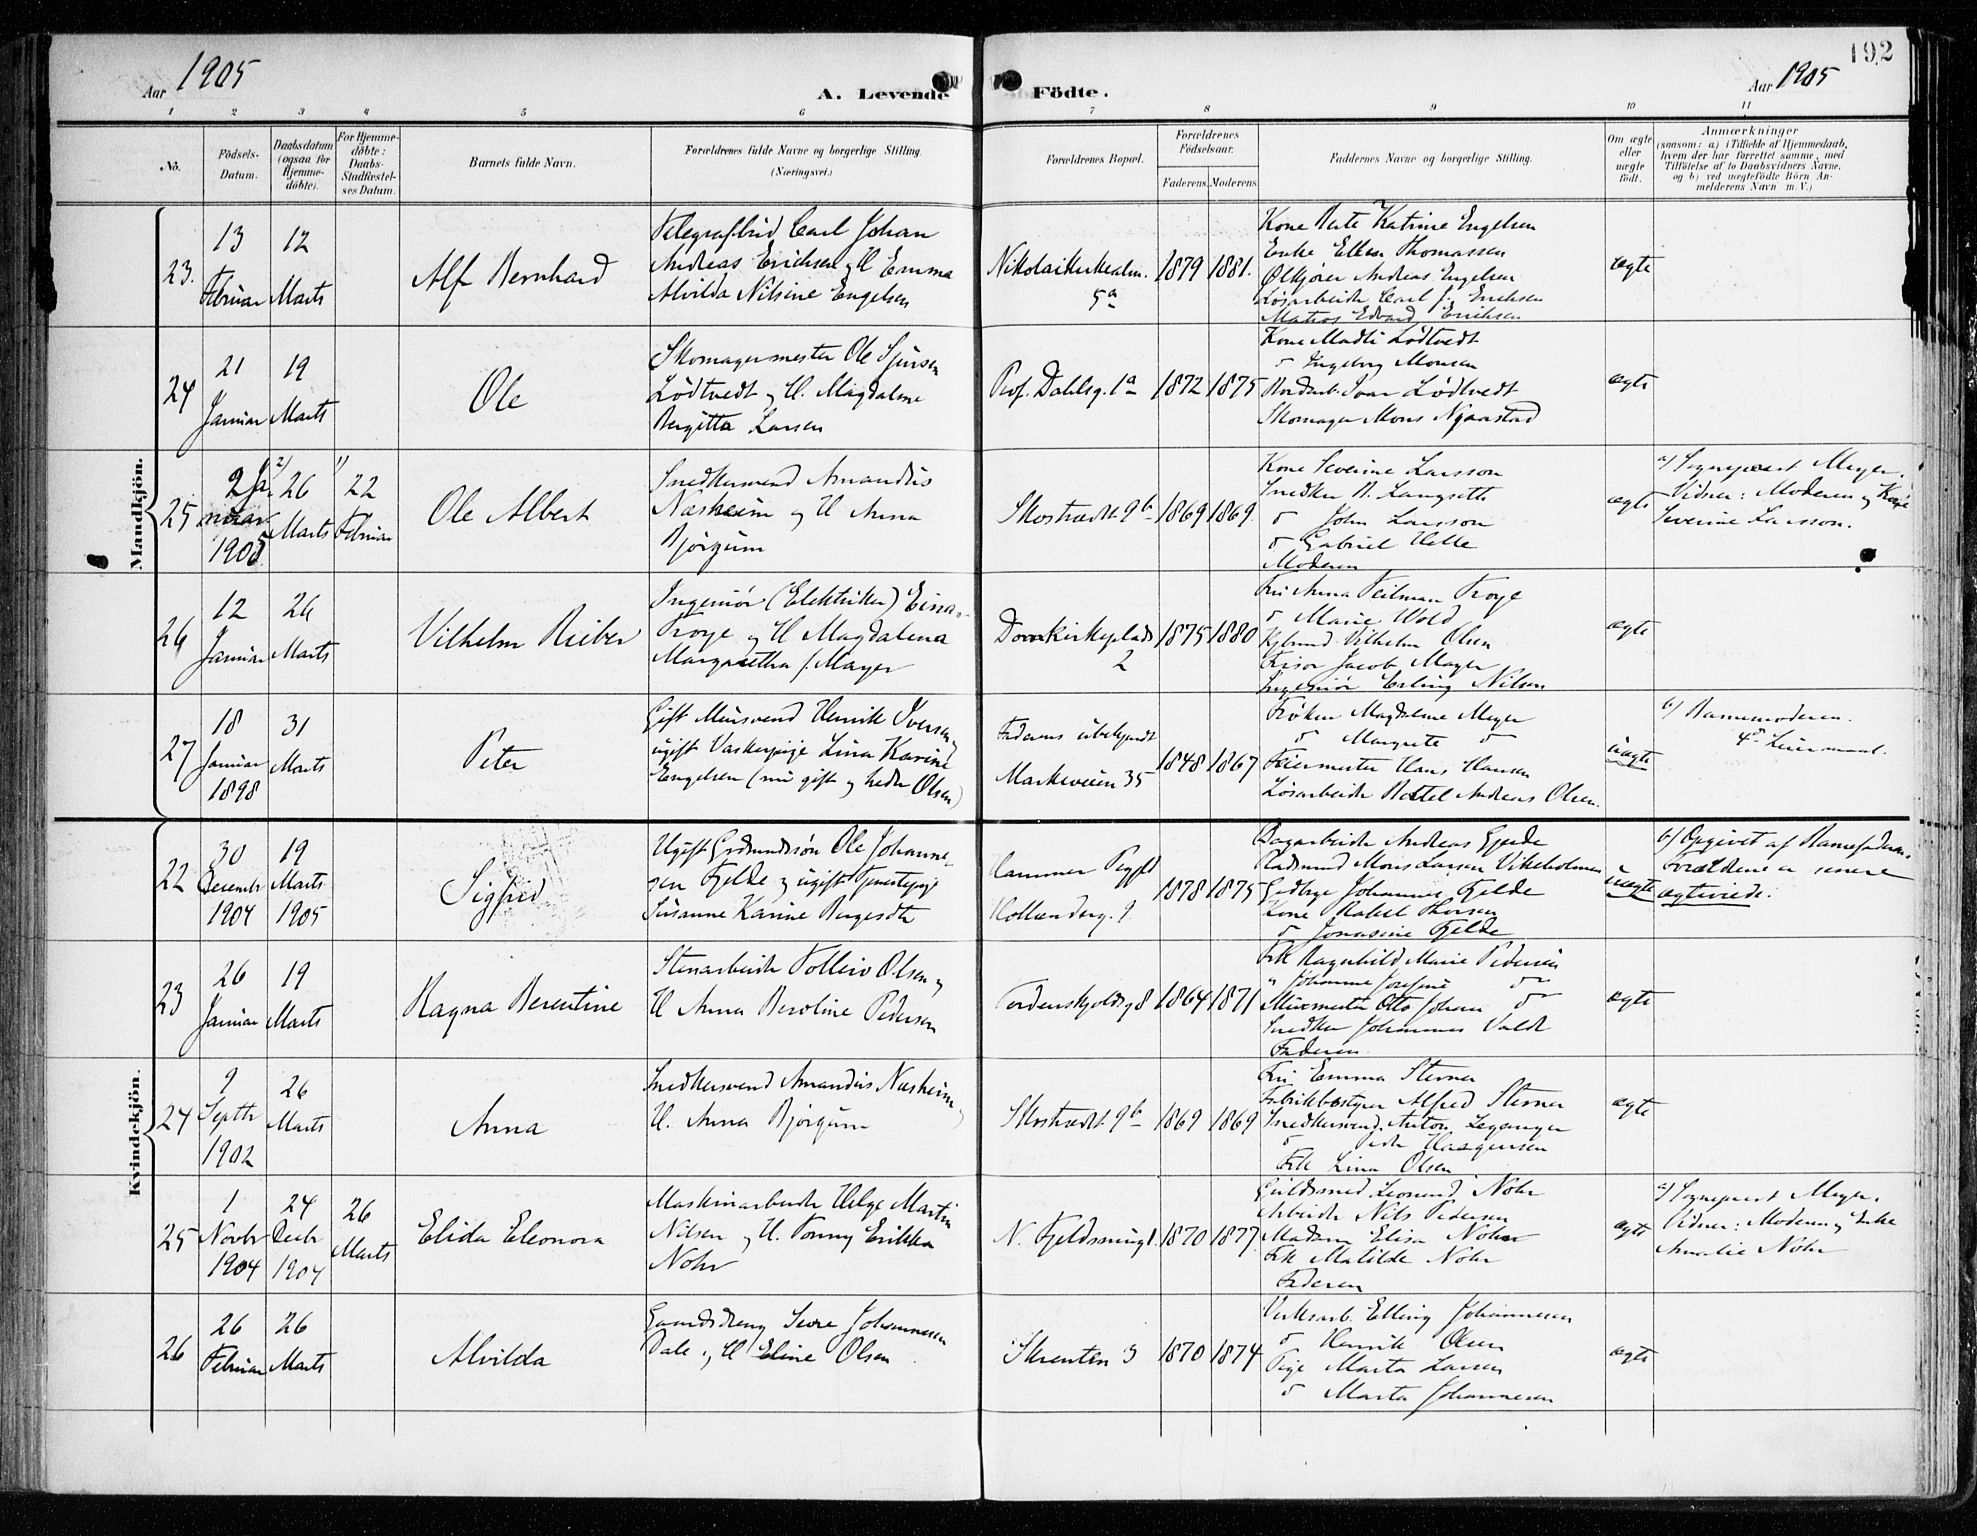 192
Aar 1905
A. Levende
Födte.
Aar 1905
1 2 3 4 5 6 7 8 9 10 11
No.
Födsels-Datum.
Daabsdatum (ogsaa for Hjemme-döbte).
For Hjemme-döbte: Daabs-Stadfæstel-ses Datum.
Barnets fulde Navn.
Forældrenes fulde Navne og borgerlige Stilling. (Næringsvei.)
Forældrenes Bopæl.
Forældrenes Födselsaar.
Faderens. Moderens.
Faddernes Navne og borgerlige Stilling.
Om ægte eller uægte født.
Anmærkninger
(saasom: a) i Tilfælde af Hjemmedaab,
hvem der har forrettet samme, med
Tilföielse af to Daabsvidners Navne,
og b) ved uægtefödte Börn An-
melderens Navn m. V.)
Mandkjön.
23.
13 Februar
12 Marts
Alf Bernhard
Telegrafbud Carl Johan
Andreas Erichsen og H Emma
Alvilda Nilsine Engelsen
Nikolaikirkealm.
5a
1879
1881.
Kone Katrine Engelsen
Enke Ellen Thomassen
Ølkjører Andreas Engelsen
Løsarbeider Carl J. Erichsen
Matros Edvard Erichsen
ægte
24
21 Januar
19 Marts
Ole
Skomagermester Ole Sjursen
Lödtvedt og H. Magdalene
Bergitta Larsen
Prof. Dahlsg. 1a
1872
1875
Kone Madli Lödtvedt
d Ingeborg Monsen
Ivar Lödtvedt
Skomager Mons Nygaastad
ægte
25
2 Januar 1905
2) 26 Marts
1) 22 Februar
Ole Albert
Snedkersvend Amandus
Næsheim og H Anna
Björgum
Skostrædet 9b
1869
1869.
Kone Severine Larsson
Snedker B. Langseth
d John Larsson
d Gabriel Helle
Moderen
ægte
a) Sognepræst Meyer.
Vidner: Moderen og Kone
Severine Larsson.
26
12 Januar
26 Marts
Vilhelm Rieber
Ingeniør (Elektriker) Einar
Troye og H Magdalena
Margaretha f. Mayer
Domkirkeplads
2
1875
1880
Fru Anna Teilman Troye
d Marie Wold
Vilhelm Olsen
Frisør Jacob Mayer
Ingeniør Erling Nilsen
ægte
27
18 Januar 1898
31 Marts
Peter
Gift Mursvend Henrik Iversen
ugift Vaskerpige Lina Karine
Engelsen (nu gift og heder Olsen)
Faderens ubekjendt
Markeveien 35
1848
1867
Frøken Magdalene Meyer
d Margrete d
Feiermester Hans Hansen
Løsarbeider Bertel Andreas Olsen.
uægte
b) Barnemoderen.
4de Leiermaal.
Kvindekjön.
22
30 Decembr 1904
19 Marts 1905
Sigfrid
Ugift Grdmandssøn Ole Johanne-
sen Fjelde og ugift Tjenestepige
Susanne Karine Bergesdtr
Hammer
Hollenderg. 9
1878
1875
Dagarbeider Andreas Gjerde
Mons Larsen Vikeholmen
Johannes Fjelde
Kone Rakel Thorsen
d Jonasine Fjelde
uægte
b) Opgivet af Barnefaderen.
Forældrene er senere
ægteviede.
23
26 Januar
19 Marts
Ragna Berentine
Stenarbeider Tolleiv Olsen og
H Anna Beroline Pedersen
Tordenskjoldsg 8
1864
1871
Frk Ragnhild Marie Pedersen
" Johanne Josefine d
Murmester Otto Johan d
Snedker Johannes Valdt
Faderen
ægte
24
9 Septbr 1902
26 Marts
Anna
Snedkersvend Amandus Næsheim og
H. Anna Björgum
Skostrædet 9b
1869
1869
Fru Emma Sterner
Fabrikbestyrer Alfred Sterner
Snedkersvend. Anton Leganger
d Peder Haagensen
Frk Lina Olsen
ægte
25
1 Novbr 1904
24 Decbr 1904
26 Marts
Elida Eleonora
Maskinarbeider Helge Martin
Nilsen og H. Tonny Erikka
Nohr
N. Fjeldsmug 1
1870
1877
Guldsmed Leonard Nohr
Arbeider Nils Pedersen
Madam Elisa Nohr
Frk Matilde Nohr
Faderen
ægte
a) Sognepræst Meyer.
Vidner: Moderen og Enke
Amalie Nohr
26
26 Februar
26 Marts
Alvilda
Gaardsdreng Sivre Johannesen
Dale og H Eline Olsen
Skrenten 3
1870
1874
Verksarb. Elling Johannesen
d Henrik Olsen
Pige Marta Larsen
d Marta Johannesen
ægte